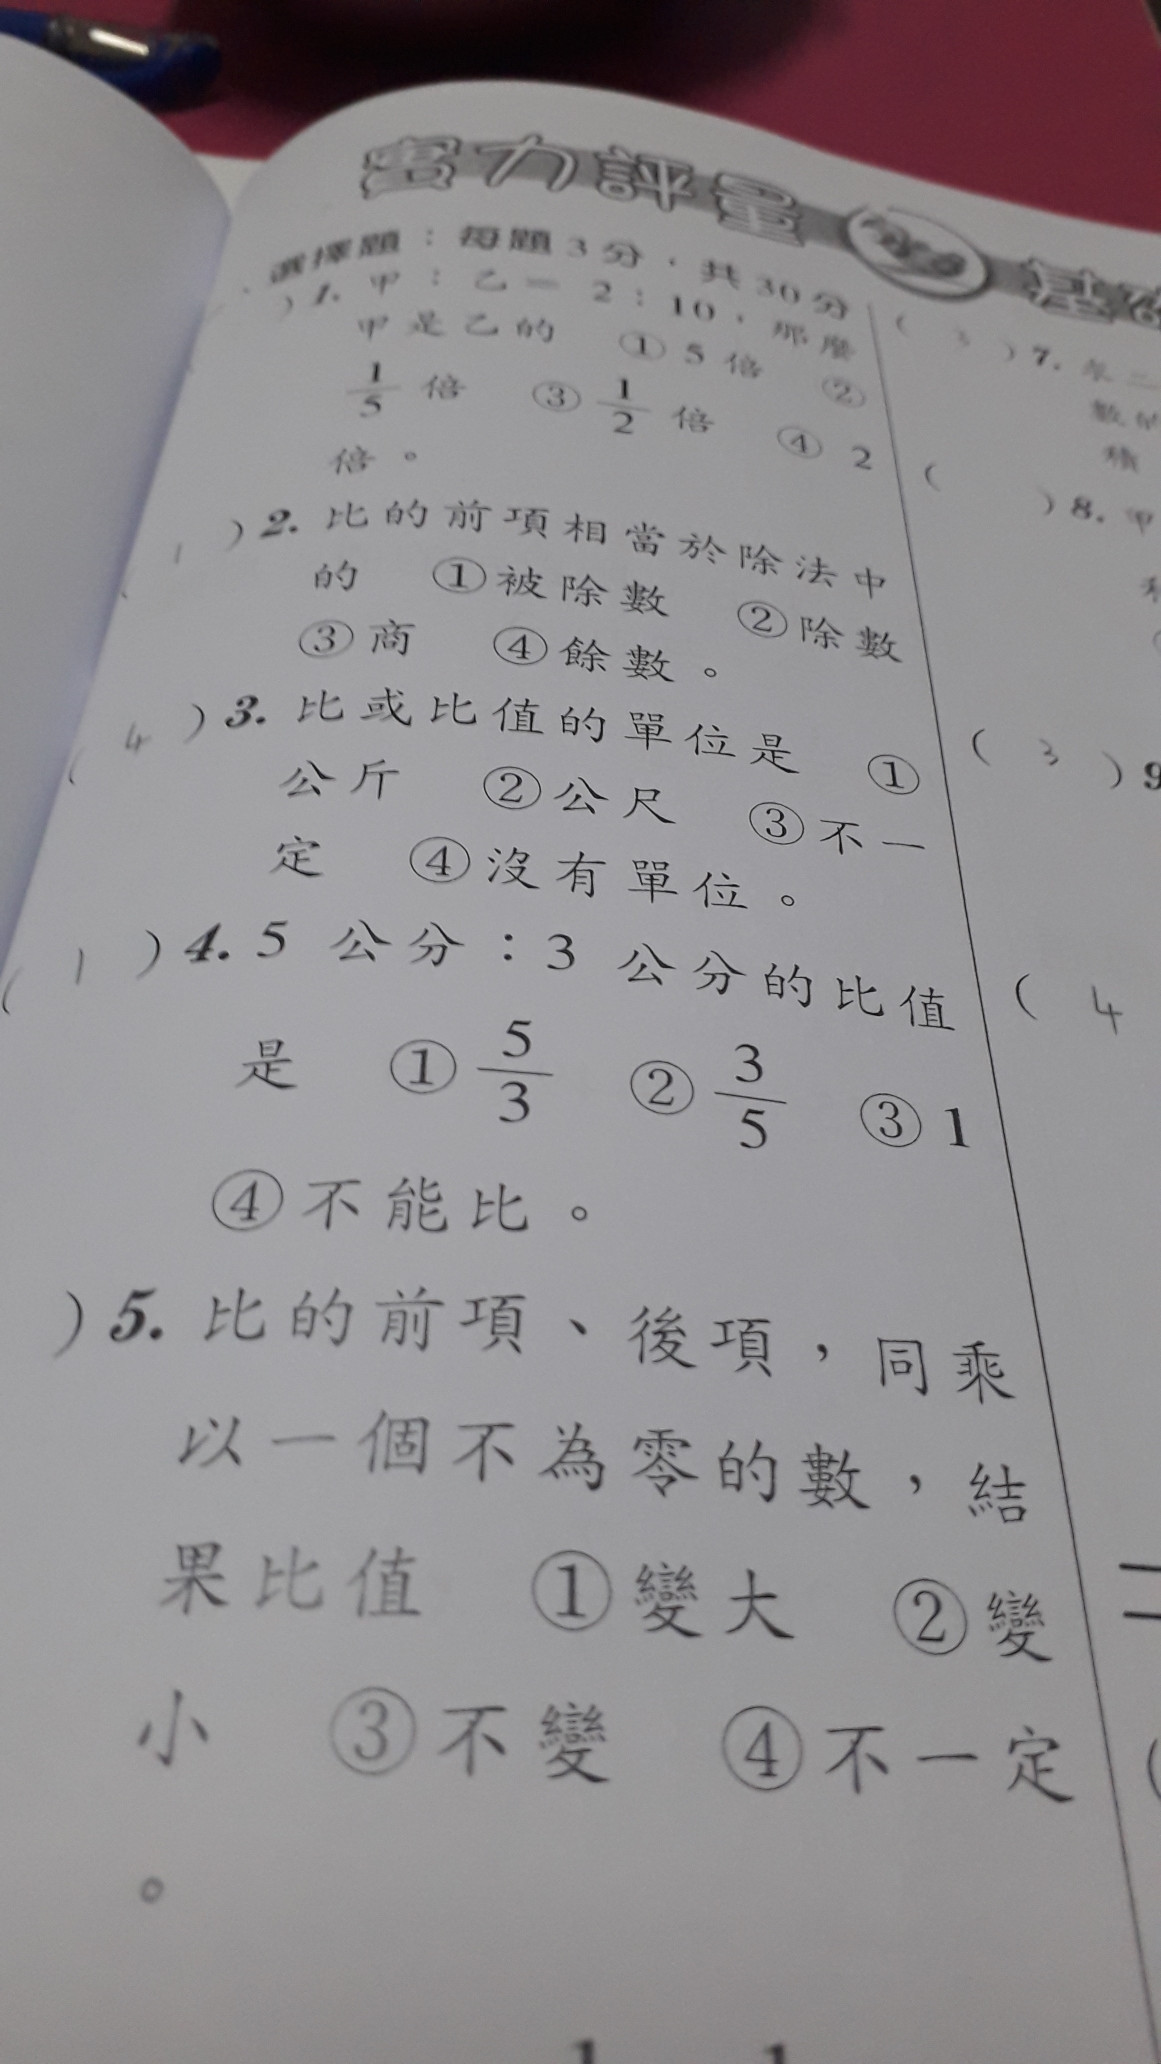 實力評量
選擇題：每題3分，共30分
)1. 甲：乙＝2：10，那麼
甲是乙的 ①5倍 ②
1/5倍 ③1/2倍 ④2
倍。
1 )2. 比的前項相當於除法中
的 ①被除數 ②除數
③商 ④餘數。
( 4 )3. 比或比值的單位是 ①
公斤 ②公尺 ③不一
定 ④沒有單位。
( 1 )4. 5 公分：3 公分的比值
是 ①5/3 ②3/5 ③1
④不能比。
)5. 比的前項、後項，同乘
以一個不為零的數，結
果比值 ①變大 ②變
小 ③不變 ④不一定
。
( 3 )7.
數
積
( )8. 甲
( 3 )9
( 4